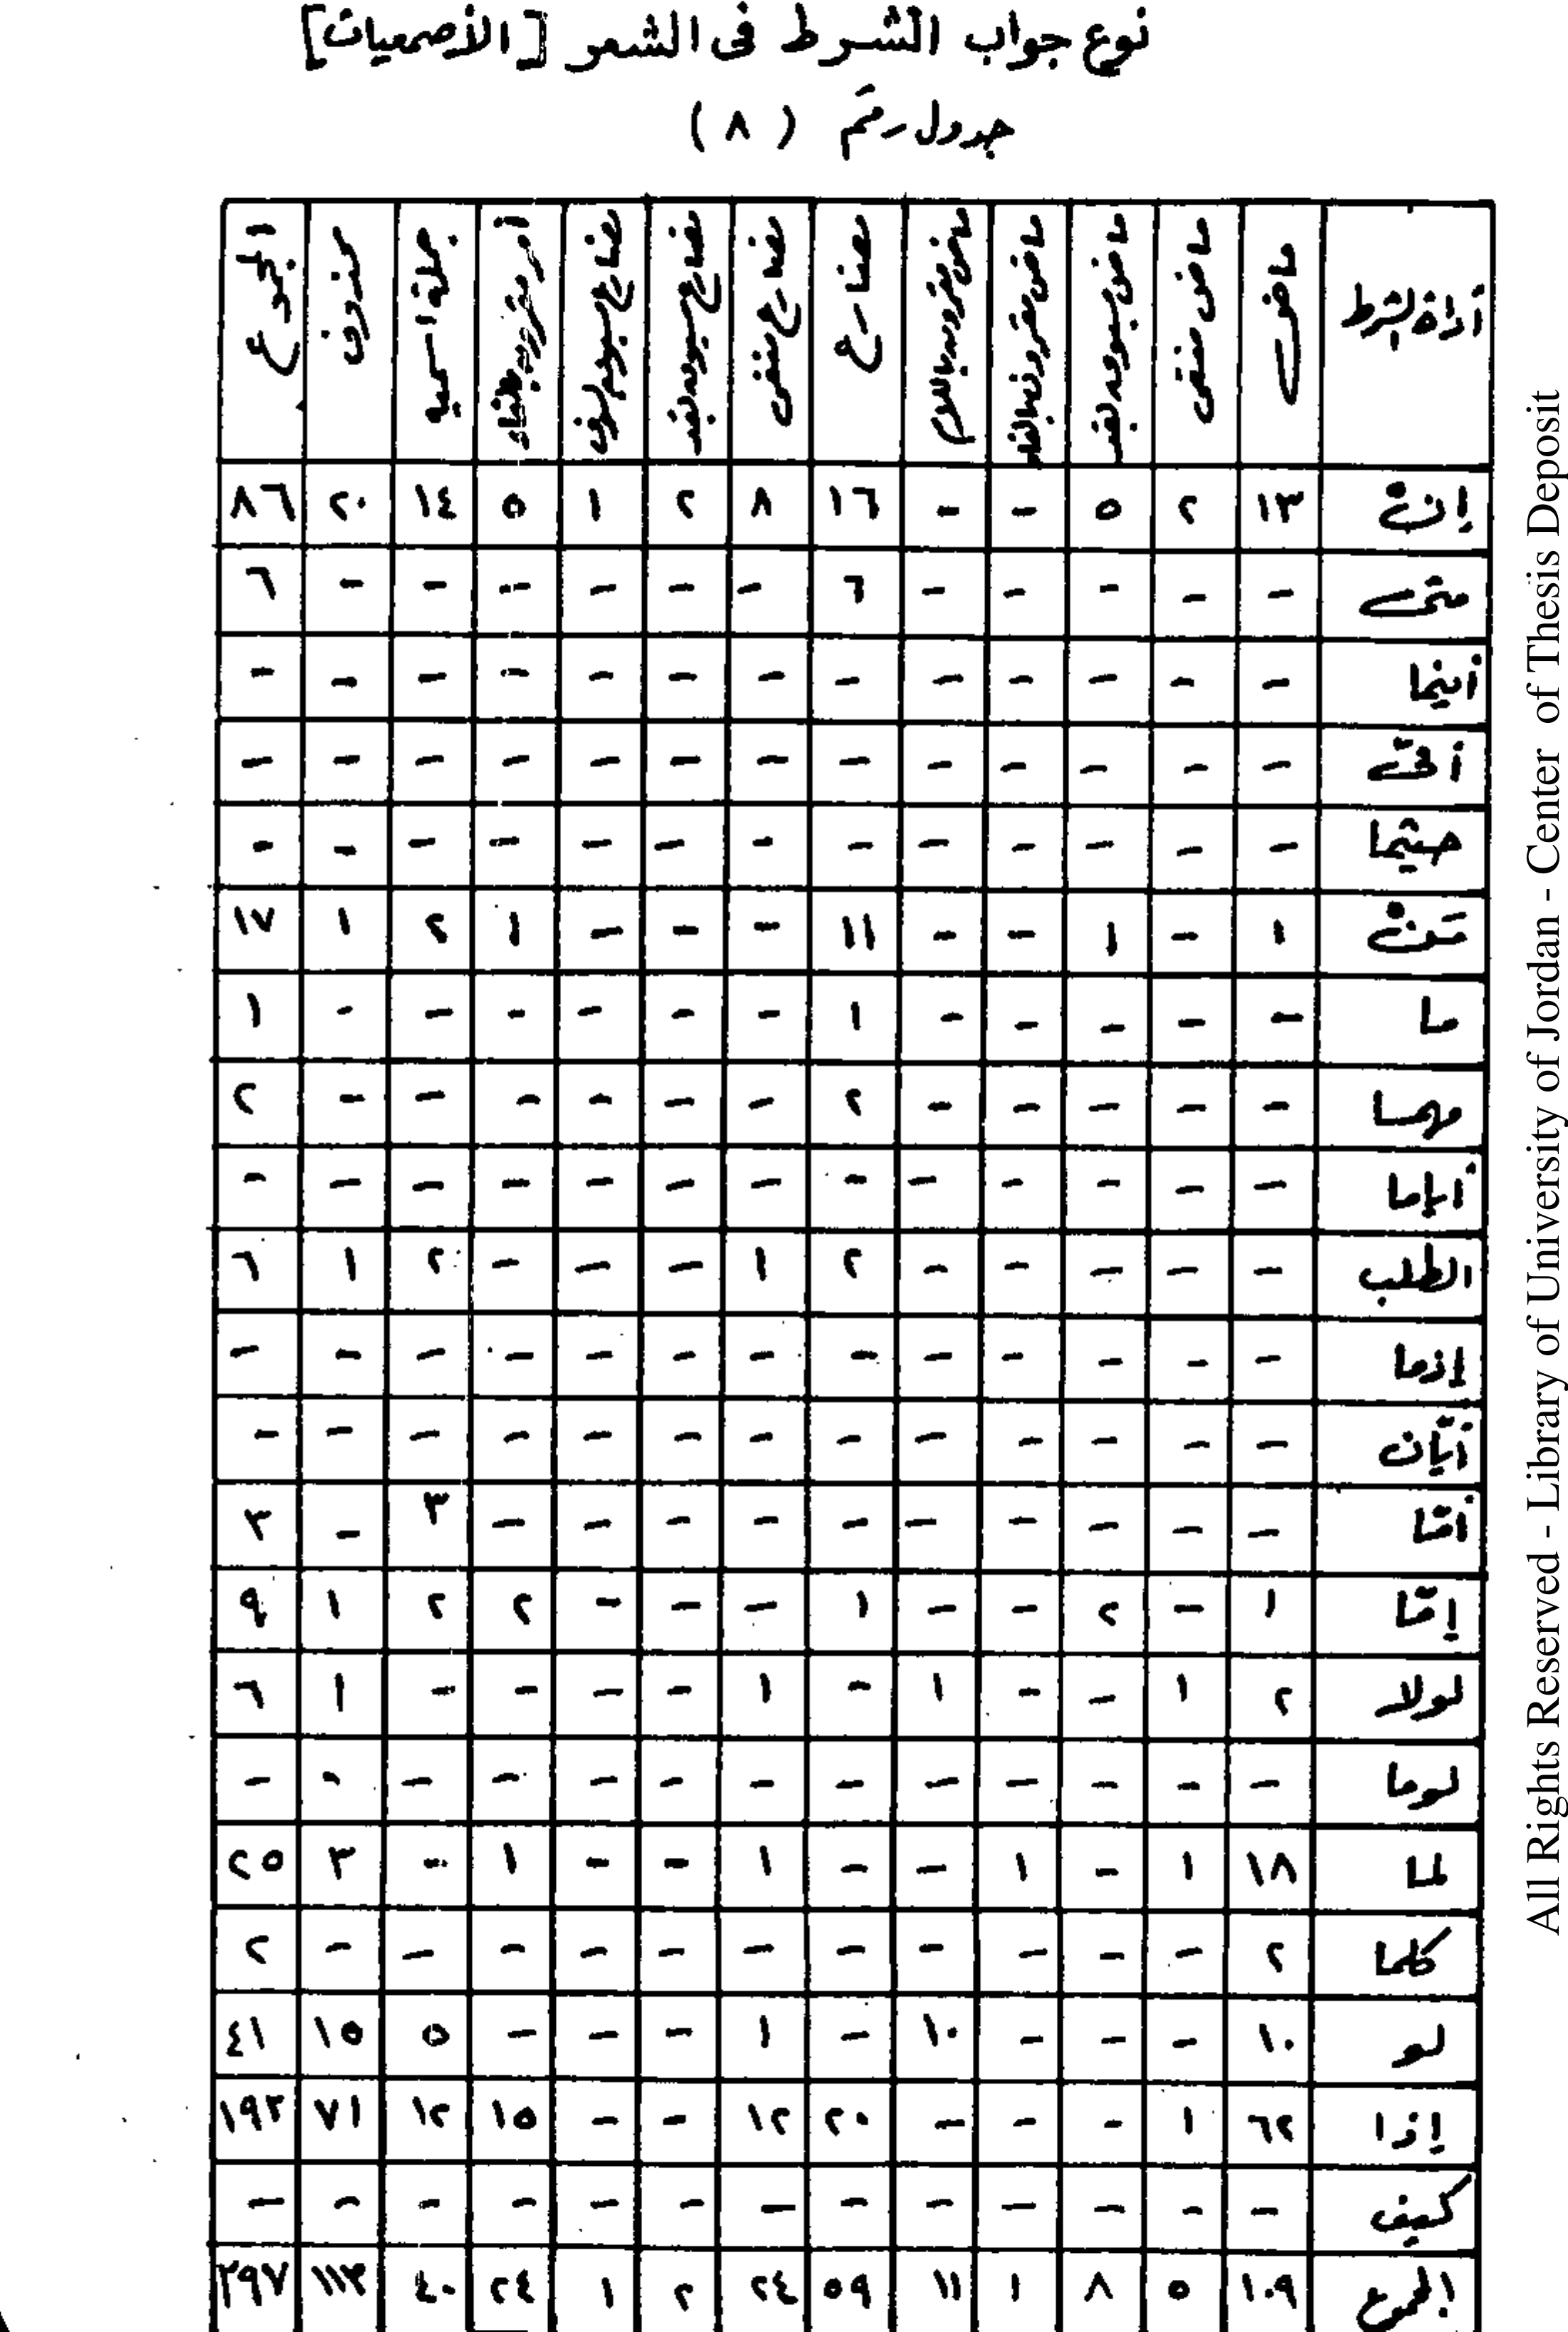 نوع جواب الشرط فى الشعر [الأصمعيات]
جدول رقم ( ٨ )
أداة الشرط ماضى ماضى منفى ماضى مسبوق بقد ماضى مقرون بالفاء ماضى مقرون باللام مضارع مضارع منفى مضارع مسبوق بقد مضارع مسبوق بسوف أمر مقرون بالفاء جملة اسمية محذوف المجموع
إنْ ١٣ ٢ ٥ - - ١٦ ٨ ٢ ١ ٥ ١٤ ٢٠ ٨٦
متى - - - - - ٦ - - - - - - ٦
أينما - - - - - - - - - - - - -
أنّى - - - - - - - - - - - - -
حيثما - - - - - - - - - - - - -
مَنْ ١ - ١ - - ١١ - - - ١ ٢ ١ ١٧
ما - - - - - ١ - - - - - - ١
مهما - - - - - ٢ - - - - - - ٢
أياما - - - - - - - - - - - - -
الطلب - - - - - ٢ ١ - - - ٢ ١ ٦
إذما - - - - - - - - - - - - -
أيّان - - - - - - - - - - - - -
أمّا - - - - - - - - - - ٣ - ٣
إمّا ١ - ٢ - - ١ - - - ٢ ٢ ١ ٩
لولا ٢ ١ - - ١ - ١ - - - - ١ ٦
لوما - - - - - - - - - - - - -
لما ١٨ ١ - ١ - - ١ - - ١ - ٣ ٢٥
كلما ٢ - - - - - - - - - - - ٢
لو ١٠ - - - ١٠ - ١ - - - ٥ ١٥ ٤١
إذا ٦٢ ١ - - - ٢٠ ١٢ - - ١٥ ١٢ ٧١ ١٩٣
كيف - - - - - - - - - - - - -
المجموع ١٠٩ ٥ ٨ ١ ١١ ٥٩ ٢٤ ٢ ١ ٢٤ ٤٠ ١١٣ ٣٩٧
All Rights Reserved - Library of University of Jordan - Center of Thesis Deposit